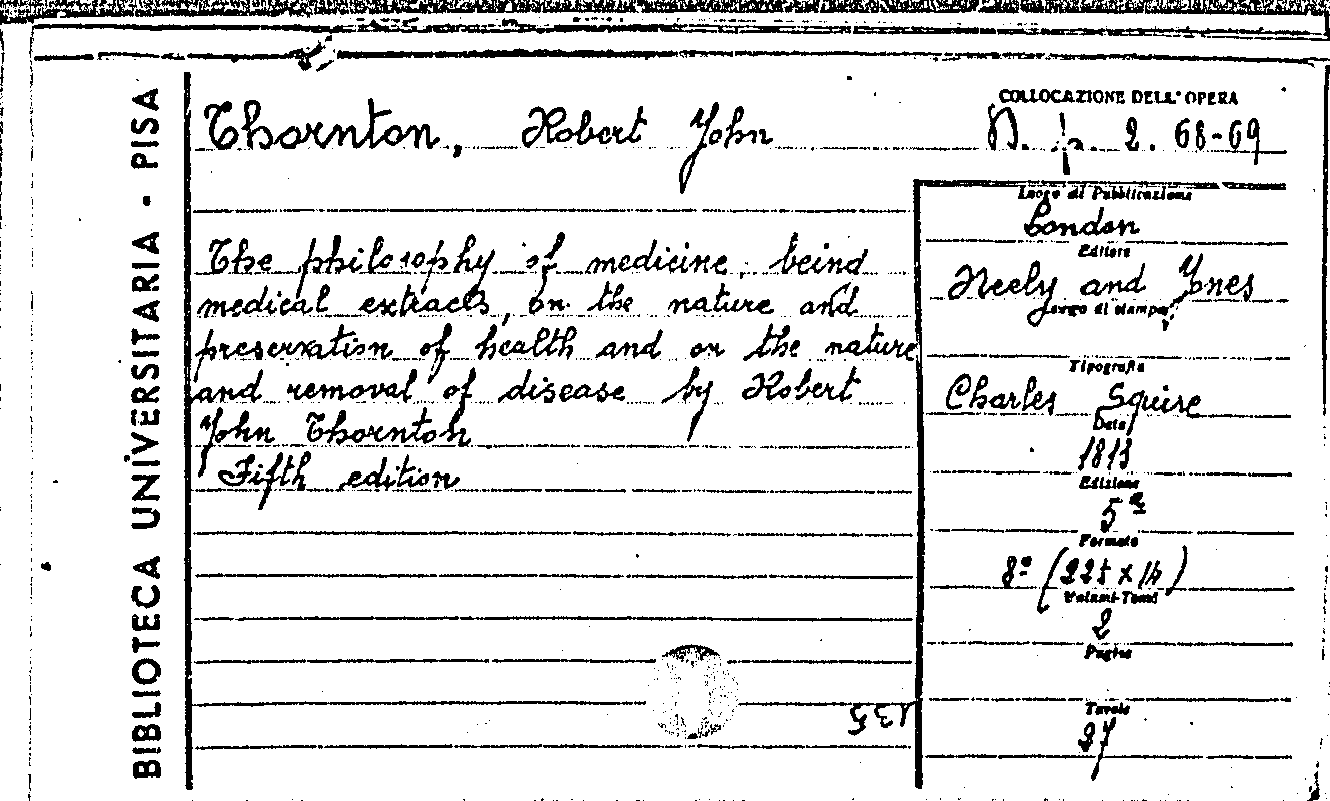 BIBLIOTECA UNIVERSITARIA - PISA
Thornton, Robert John
COLLOCAZIONE DELL'OPERA
N. p. 2. 68-69
The philosophy of medicine, being
medical extracts, on the nature and
preservation of health and on the nature
and removal of disease by Robert
John Thornton
Fifth edition
Luogo di Pubblicazione
London
Editore
Neely and Jones
Luogo di stampa
Tipografia
Charles Squire
Data
1813
Edizione
5ª
Formato
8º (225 x 14)
Volumi-Tomi
2
Pagine
Tavole
27
135